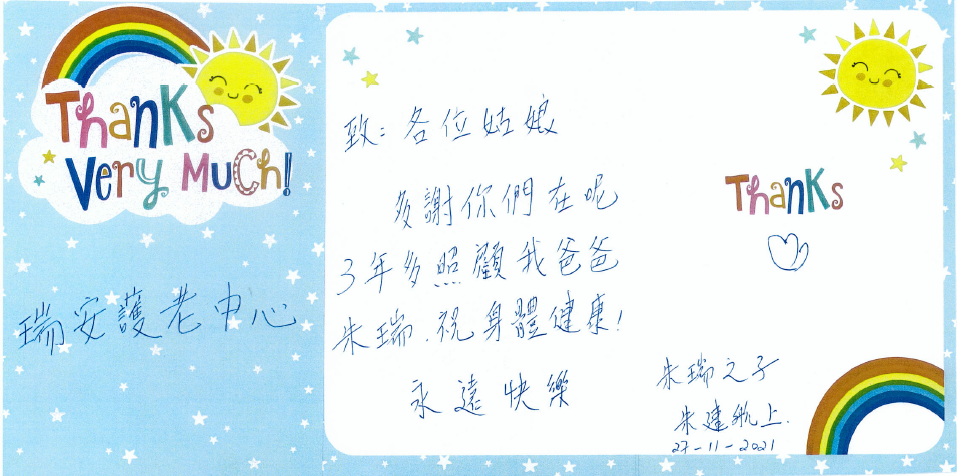 Thanks
Very Much!
瑞安護老中心
致：各位姑娘
多謝你們在呢
3年多照顧我爸爸
朱瑞，祝身體健康！
永遠快樂
Thanks
朱瑞之子
朱建帆上.
27-11-2021